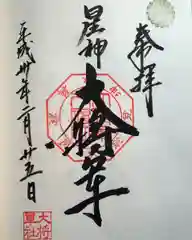 奉拝
星神
大将軍
平成卅年二月廿五日
大将軍社